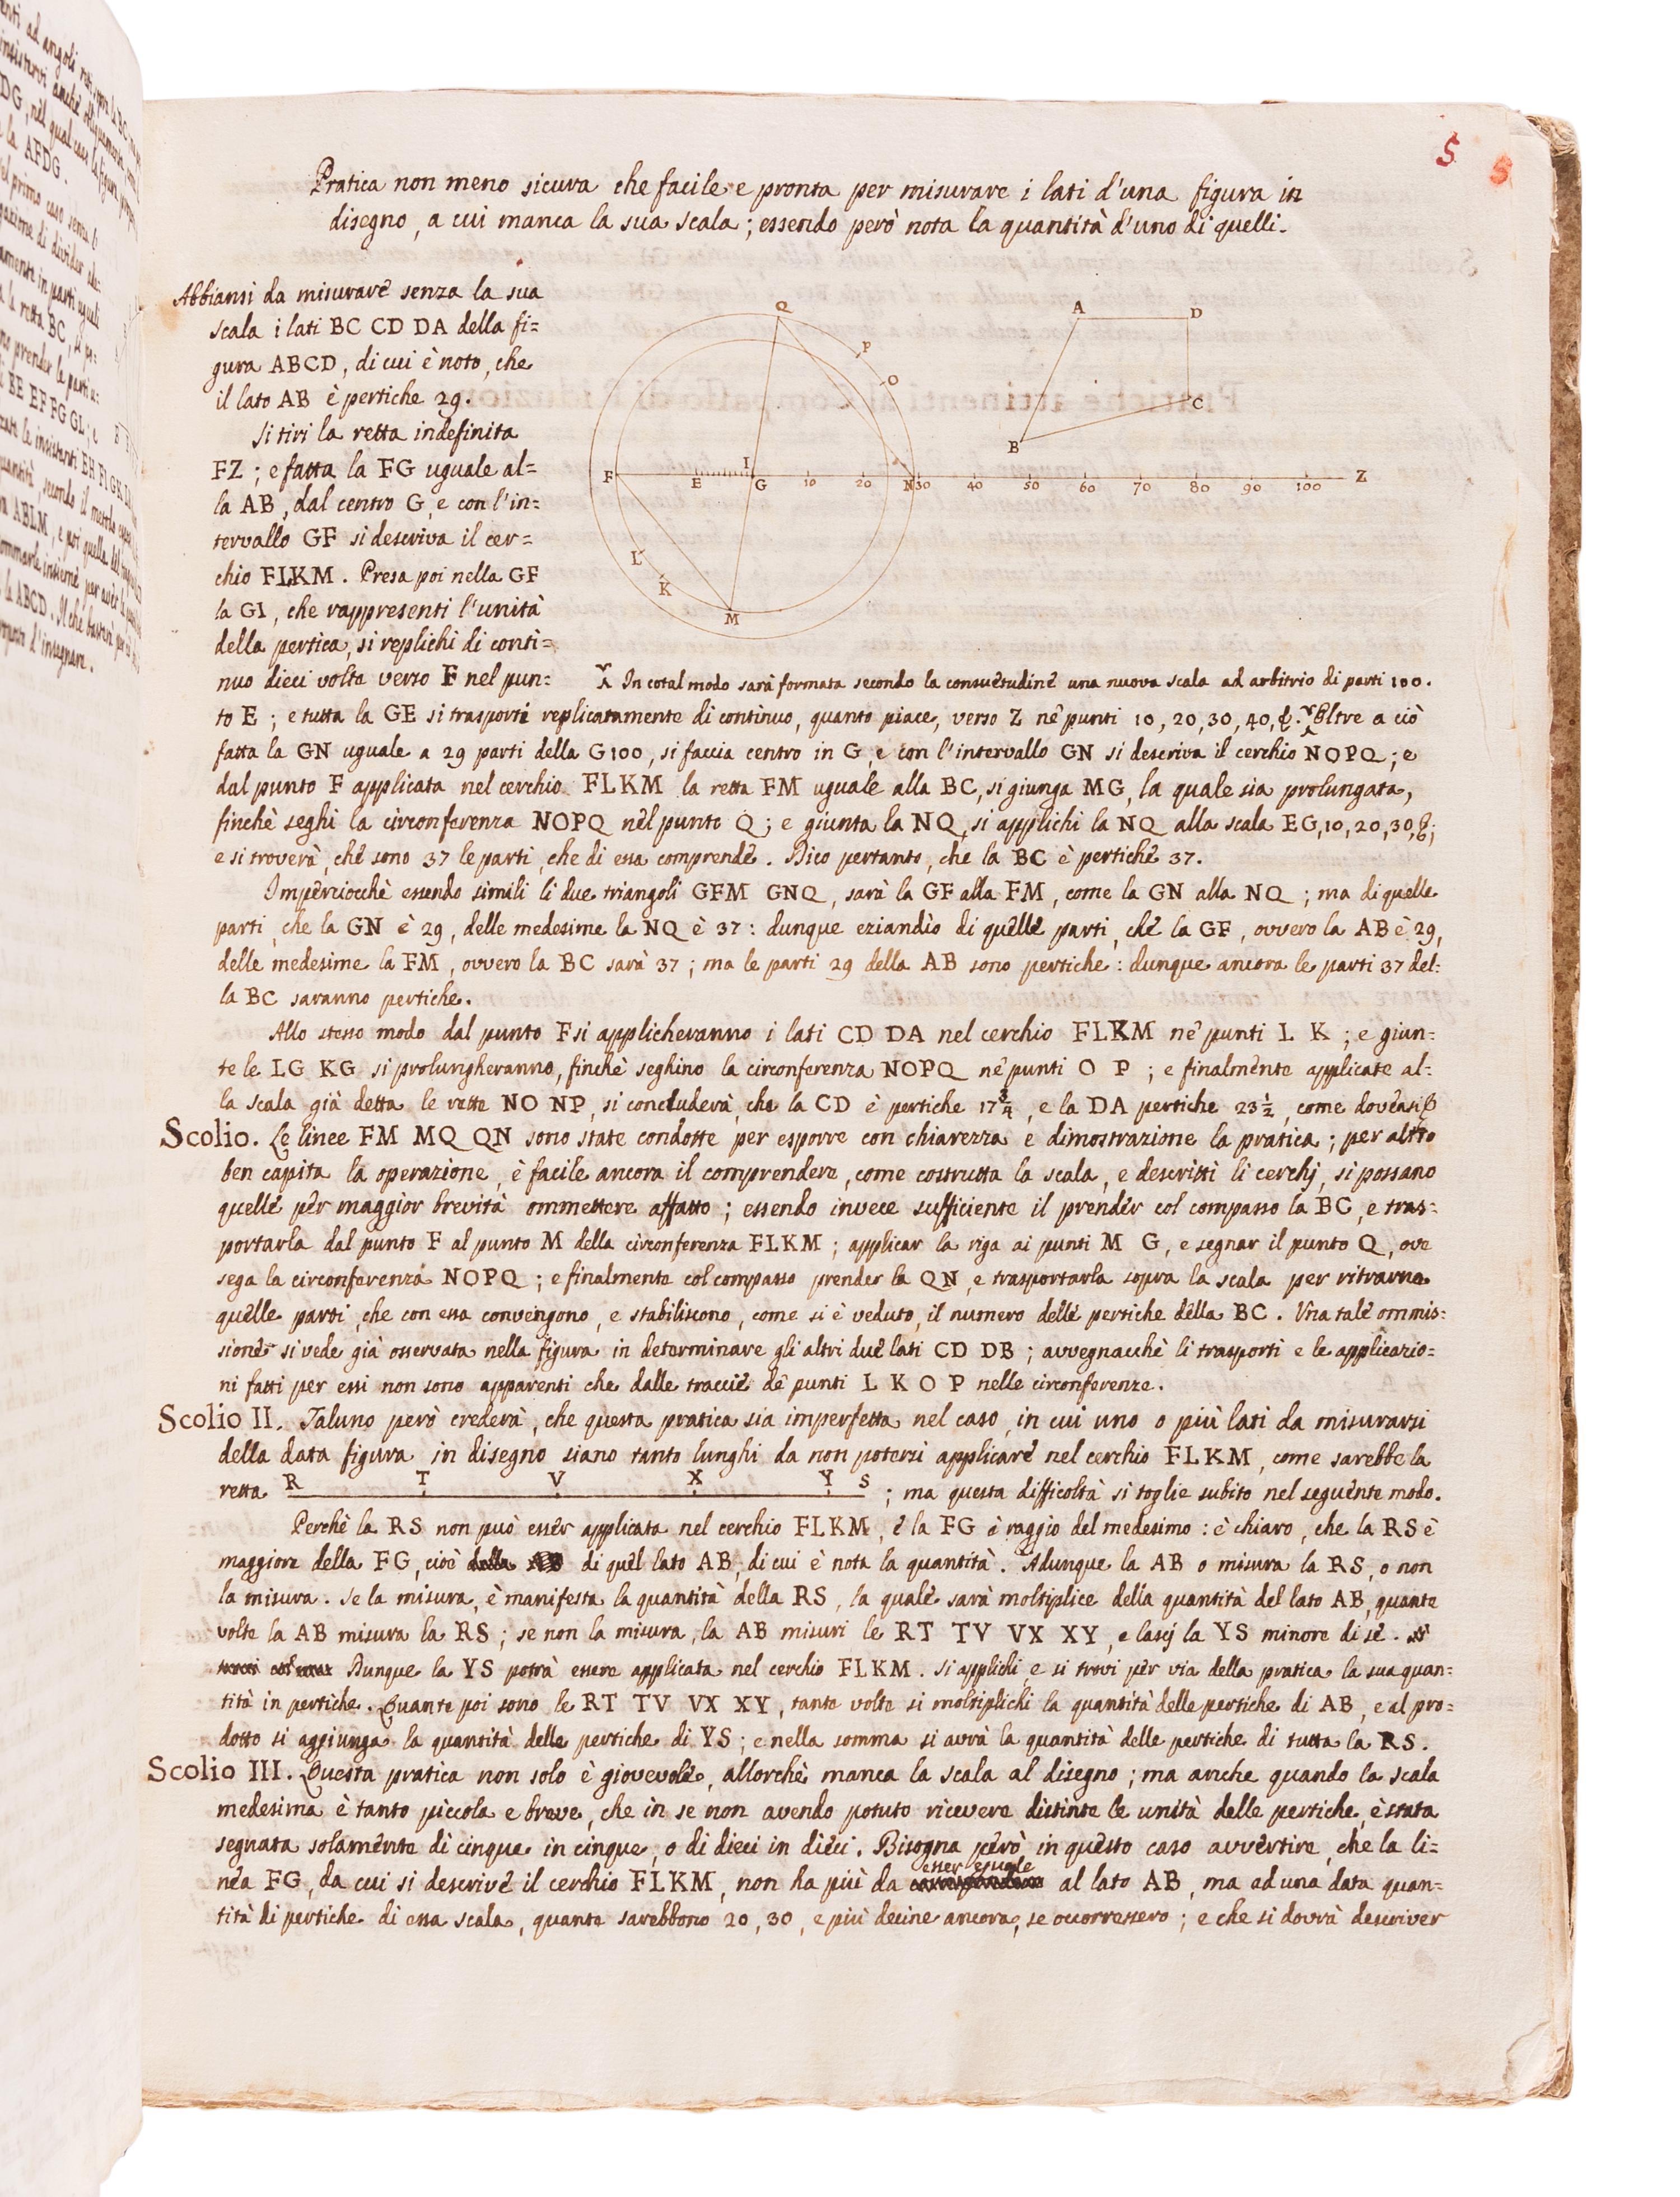 5 5
Pratica non meno sicura che facile e pronta per misurare i lati d'una figura in
disegno, a cui manca la sua scala; essendo però nota la quantità d'uno di quelli.
Abbiansi da misurare senza la sua
scala i lati BC CD DA della fi=
gura ABCD, di cui è noto, che
il lato AB è pertiche 29.
Si tiri la retta indefinita
FZ; e fatta la FG uguale al=
la AB, dal centro G, e con l'in=
tervallo GF si descriva il cer=
chio FLKM. Presa poi nella GF
la GI, che rappresenti l'unità
della pertica, si replichi di conti=
nuo dieci volte verso F nel pun=
Q P O A D C B
F E I G 10 20 N 30 40 50 60 70 80 90 100 Z
L K M
In cotal modo sarà formata secondo la consuetudine una nuova scala ad arbitrio di parti 100.
to E; e tutta la GE si trasporti replicatamente di continuo, quanto piace, verso Z ne' punti 10, 20, 30, 40, &. Oltre a ciò
fatta la GN uguale a 29 parti della G100, si faccia centro in G, e con l'intervallo GN si descriva il cerchio NOPQ; e
dal punto F applicata nel cerchio FLKM la retta FM uguale alla BC, si giunga MG, la quale sia prolungata,
finchè seghi la circonferenza NOPQ nel punto Q; e giunta la NQ, si applichi la NQ alla scala EG, 10, 20, 30, &;
e si troverà, che sono 37 le parti, che di essa comprende. Dico pertanto, che la BC è pertiche 37.
Imperciocchè essendo simili li due triangoli GFM GNQ, sarà la GF alla FM, come la GN alla NQ; ma di quelle
parti, che la GN è 29, delle medesime la NQ è 37: dunque eziandio di quelle parti, che la GF, ovvero la AB è 29,
delle medesime la FM, ovvero la BC sarà 37; ma le parti 29 della AB sono pertiche: dunque ancora le parti 37 del=
la BC saranno pertiche.
Allo stesso modo dal punto F si applicheranno i lati CD DA nel cerchio FLKM ne' punti L K; e giun=
te le LG KG si prolungheranno, finchè seghino la circonferenza NOPQ ne' punti O P; e finalmente applicate al=
la scala già detta le rette NO NP, si concluderà, che la CD è pertiche 17 3/4, e la DA pertiche 23 1/2, come doveasi &
Scolio. Le linee FM MQ QN sono state condotte per esporre con chiarezza e dimostrazione la pratica; per altro
ben capita la operazione, è facile ancora il comprendere, come costrutta la scala, e descritti li cerchj, si possano
quelle per maggior brevità ommettere affatto; essendo invece sufficiente il prender col compasso la BC, e tras=
portarla dal punto F al punto M della circonferenza FLKM; applicar la riga ai punti M G, e segnar il punto Q, ove
sega la circonferenza NOPQ; e finalmente col compasso prender la QN, e trasportarla sopra la scala per ritrarne
quelle parti, che con essa convengono, e stabiliscono, come si è veduto, il numero delle pertiche della BC. Una tale ommis=
sione si vede già osservata nella figura in determinare gli altri due lati CD DB; avvegnacchè li trasporti e le applicazio=
ni fatti per essi non sono apparenti che dalle traccie de' punti L K O P nelle circonferenze.
Scolio II. Taluno però crederà, che questa pratica sia imperfetta nel caso, in cui uno o più lati da misurarsi
della data figura in disegno siano tanto lunghi da non potersi applicare nel cerchio FLKM, come sarebbe la
retta R T V X Y S; ma questa difficoltà si toglie subito nel seguente modo.
Perchè la RS non può esser applicata nel cerchio FLKM, e la FG è raggio del medesimo: è chiaro, che la RS è
maggiore della FG, cioè di quel lato AB, di cui è nota la quantità. Adunque la AB o misura la RS, o non
la misura. Se la misura, è manifesta la quantità della RS, la quale sarà moltiplice della quantità del lato AB, quante
volte la AB misura la RS; se non la misura, la AB misuri le RT TV VX XY, e lascj la YS minore di sè.
Dunque la YS potrà essere applicata nel cerchio FLKM. Si applichi, e si trovi per via della pratica la sua quan=
tità in pertiche. Quante poi sono le RT TV VX XY, tante volte si moltiplichi la quantità delle pertiche di AB, e al pro=
dotto si aggiunga la quantità delle pertiche di YS; e nella somma si avrà la quantità delle pertiche di tutta la RS.
Scolio III. Questa pratica non solo è giovevole, allorchè manca la scala al disegno; ma anche quando la scala
medesima è tanto piccola e breve, che in se non avendo potuto ricevere distinte le unità delle pertiche, è stata
segnata solamente di cinque in cinque, o di dieci in dieci. Bisogna però in questo caso avvertire, che la li=
nea FG, da cui si descrive il cerchio FLKM, non ha più da esser eguale al lato AB, ma ad una data quan=
tità di pertiche di essa scala, quante sarebbono 20, 30, e più decine ancora, se occorressero; e che si dovrà descriver